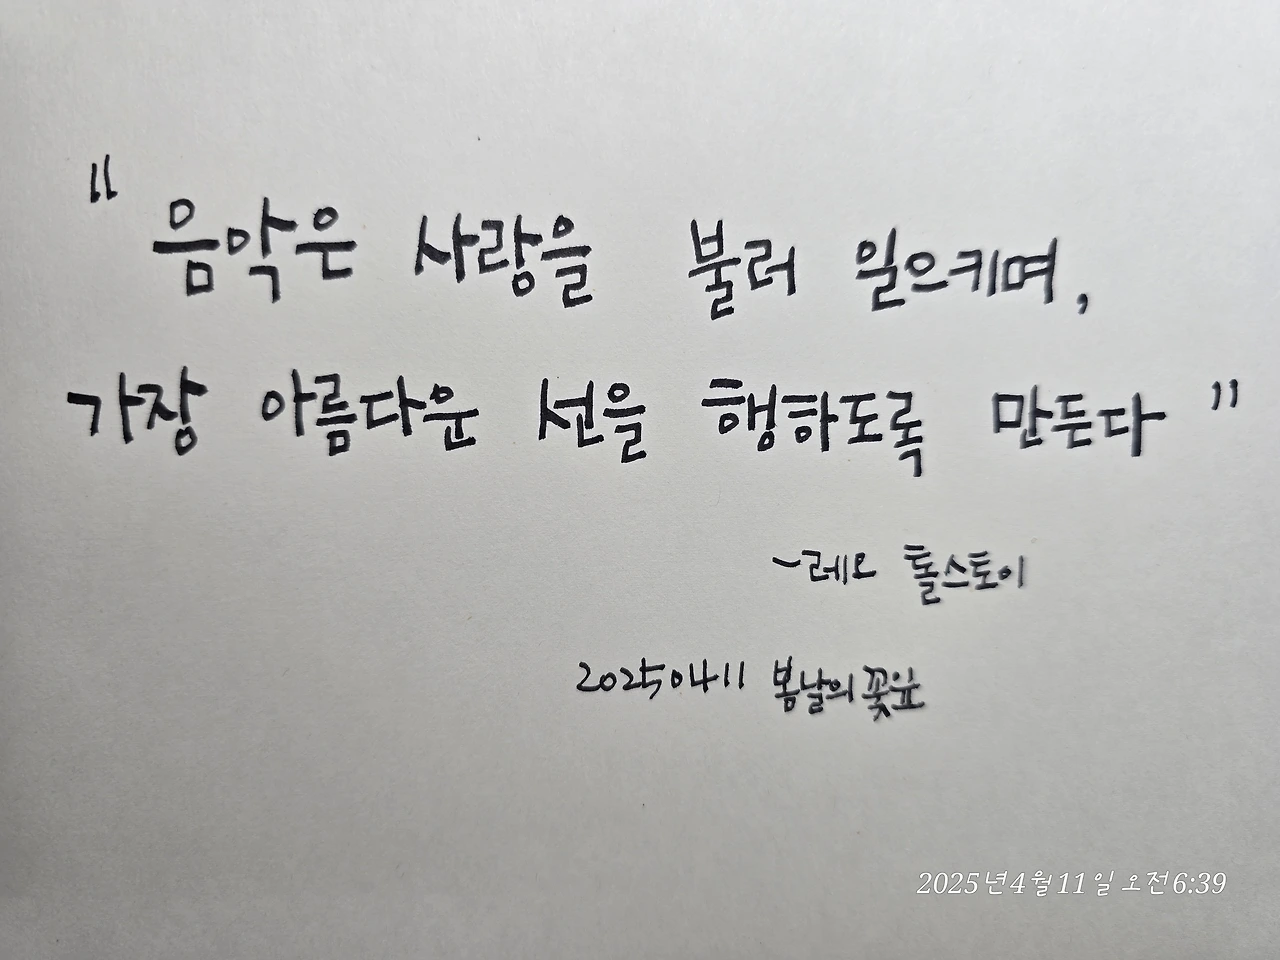 "음악은 사랑을 불러 일으키며,
가장 아름다운 선을 행하도록 만든다"
-레오 톨스토이
20250411 봄날의꽃잎
2025년4월11일 오전6:39